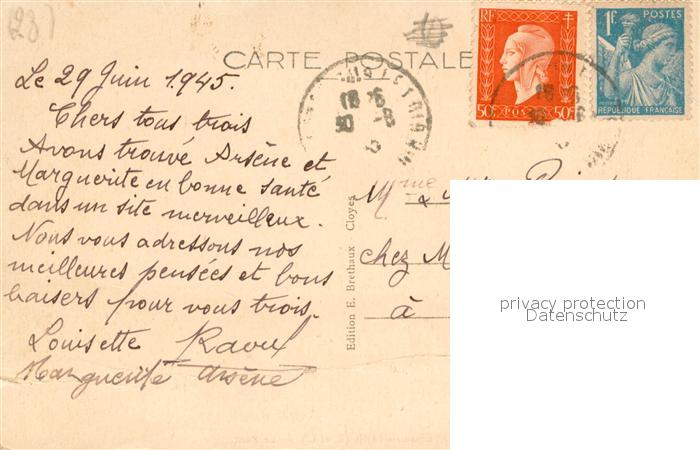 (28)
CARTE POSTALE
RF
50c POSTES 50c
1F POSTES
REPUBLIQUE FRANÇAISE
Le 29 Juin 1945.
Chers tous trois
Avons trouvé Arsène et
Marguerite en bonne santé
dans un site merveilleux.
Nous vous adressons nos
meilleures pensées et bons
baisers pour vous trois.
Louisette Raoul
Marguerite Arsène
Edition E. Brethaux Cloyes
Mme
chez M
à
privacy protection
Datenschutz